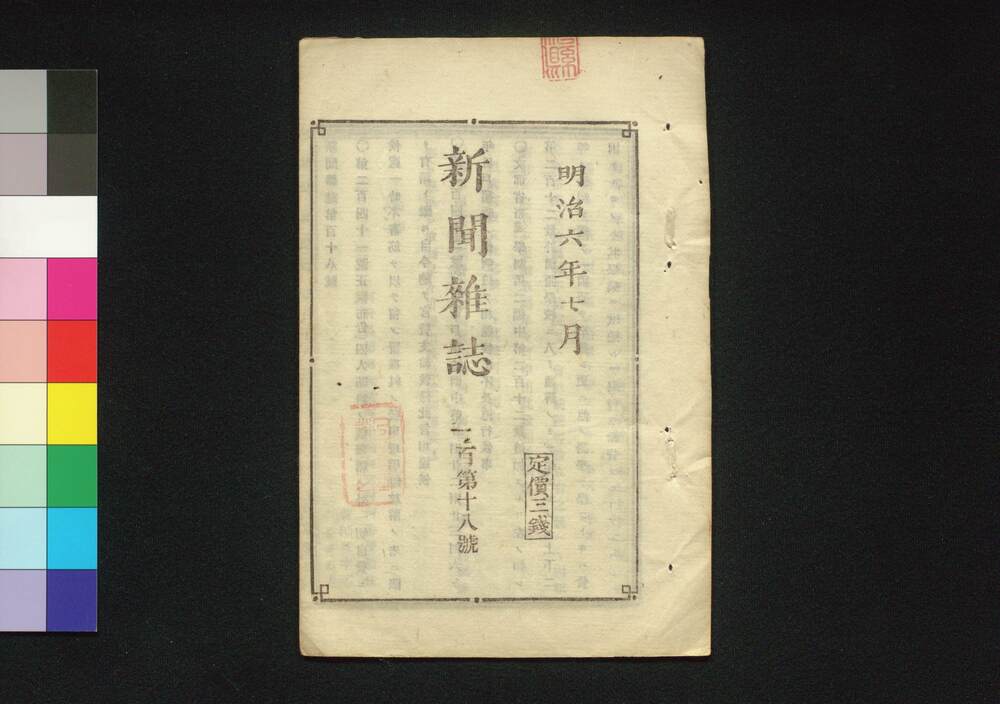 明治六年七月
定價三錢
新聞雜誌
一百第十八號